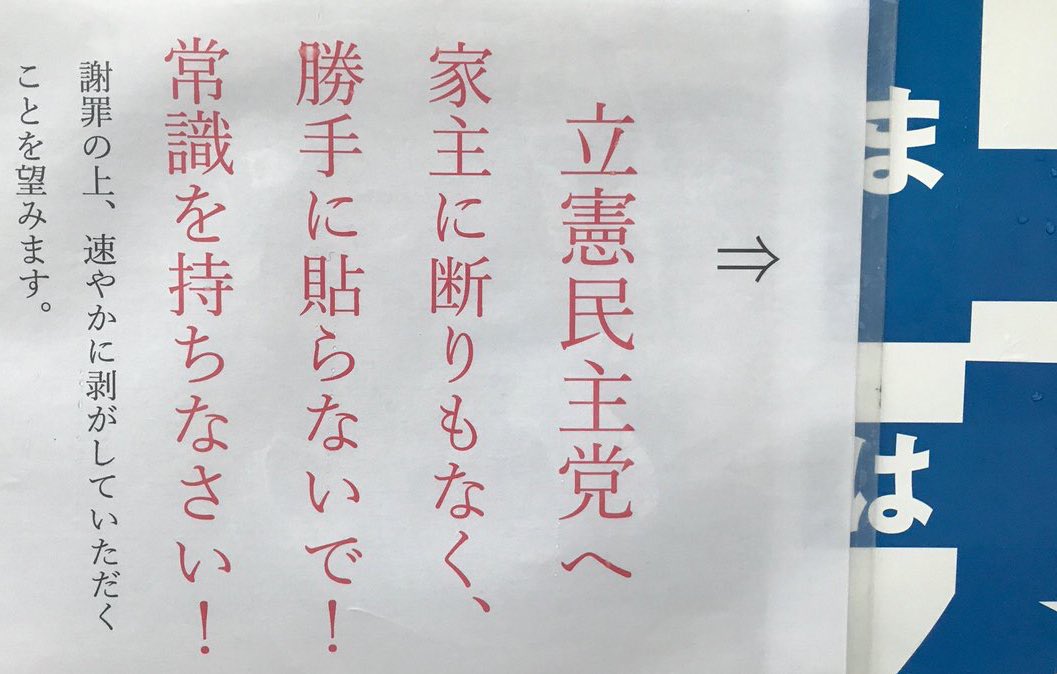 ⇒
立憲民主党へ
家主に断りもなく、
勝手に貼らないで！
常識を持ちなさい！
謝罪の上、速やかに剥がしていただく
ことを望みます。
ま
は